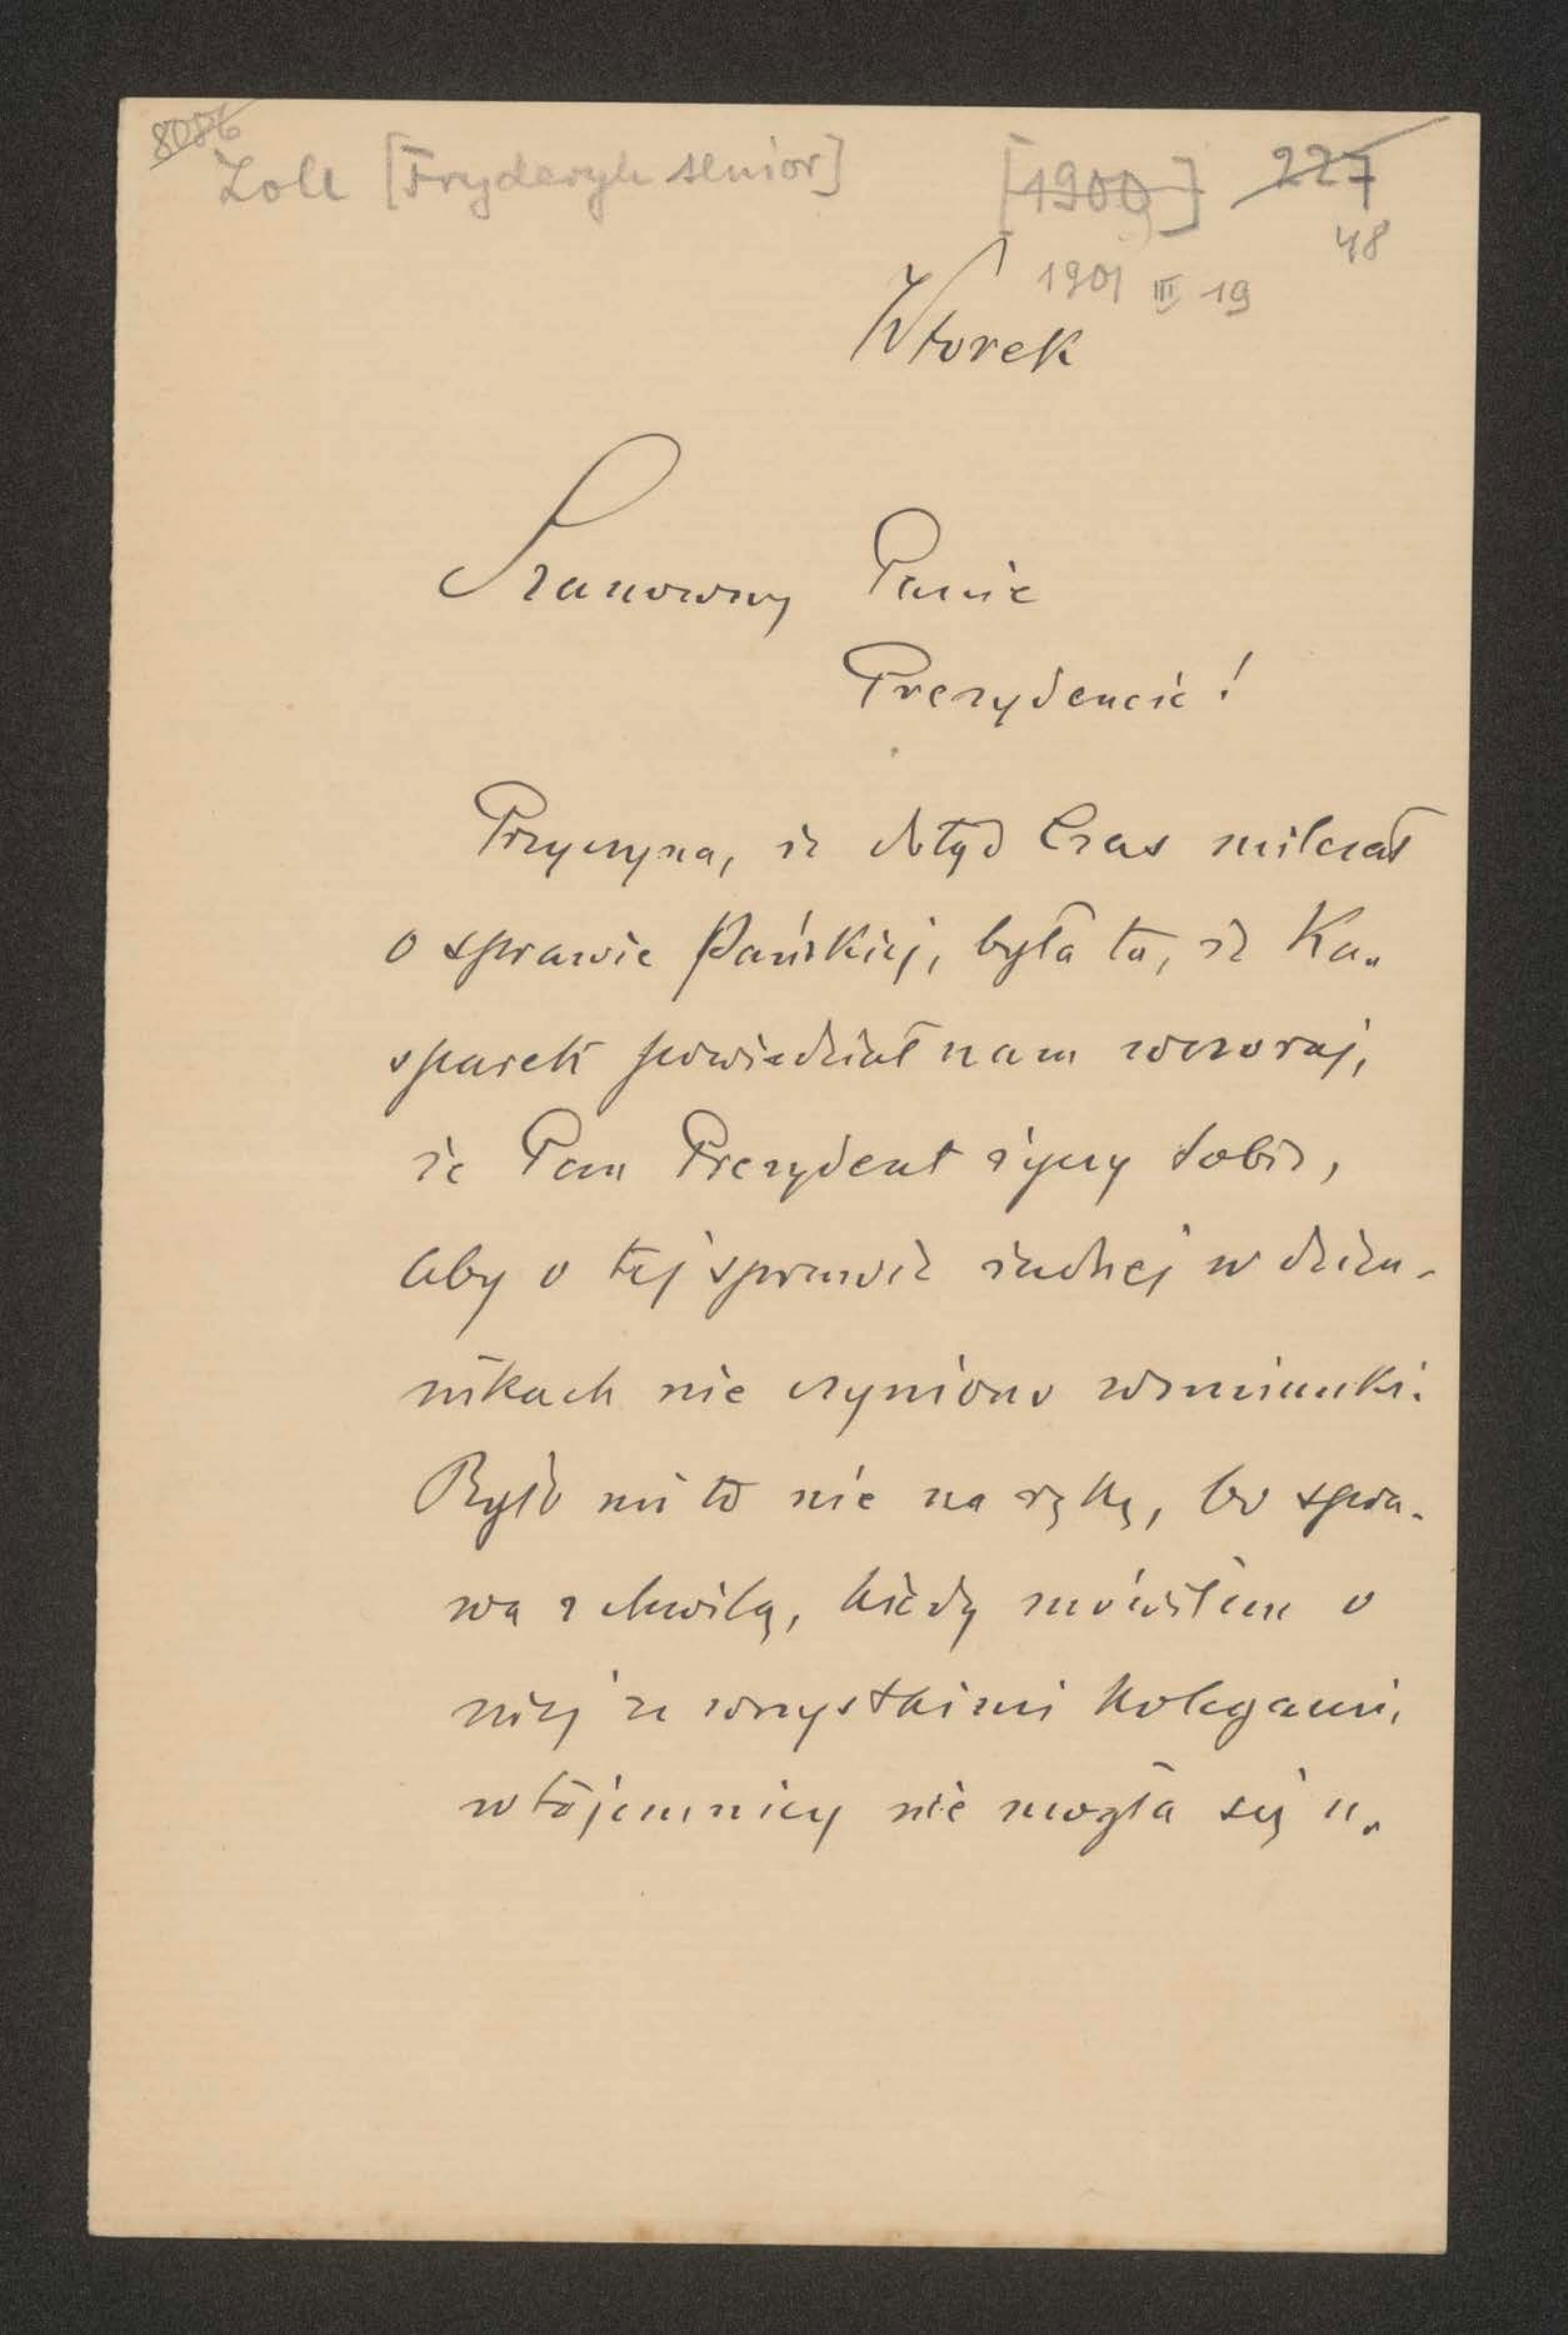 8086
Zoll [Fryderyk senior] [1900] 227
48
1901 III 19
Wtorek
Szanowny Panie
Prezydencie!
Przyczyna, iż dotąd Czas milczał
o sprawie Pańskiej, była ta, iż Ka-
sparek powiedział nam wczoraj,
że Pan Prezydent życzy sobie,
aby o tej sprawie żadnej w dzien-
nikach nie czyniono wzmianki.
Było mi to nie na rękę, bo spra-
wa z chwilą, kiedy mówiłem o
niej ze wszystkimi kolegami,
w tajemnicy nie mogła się u-